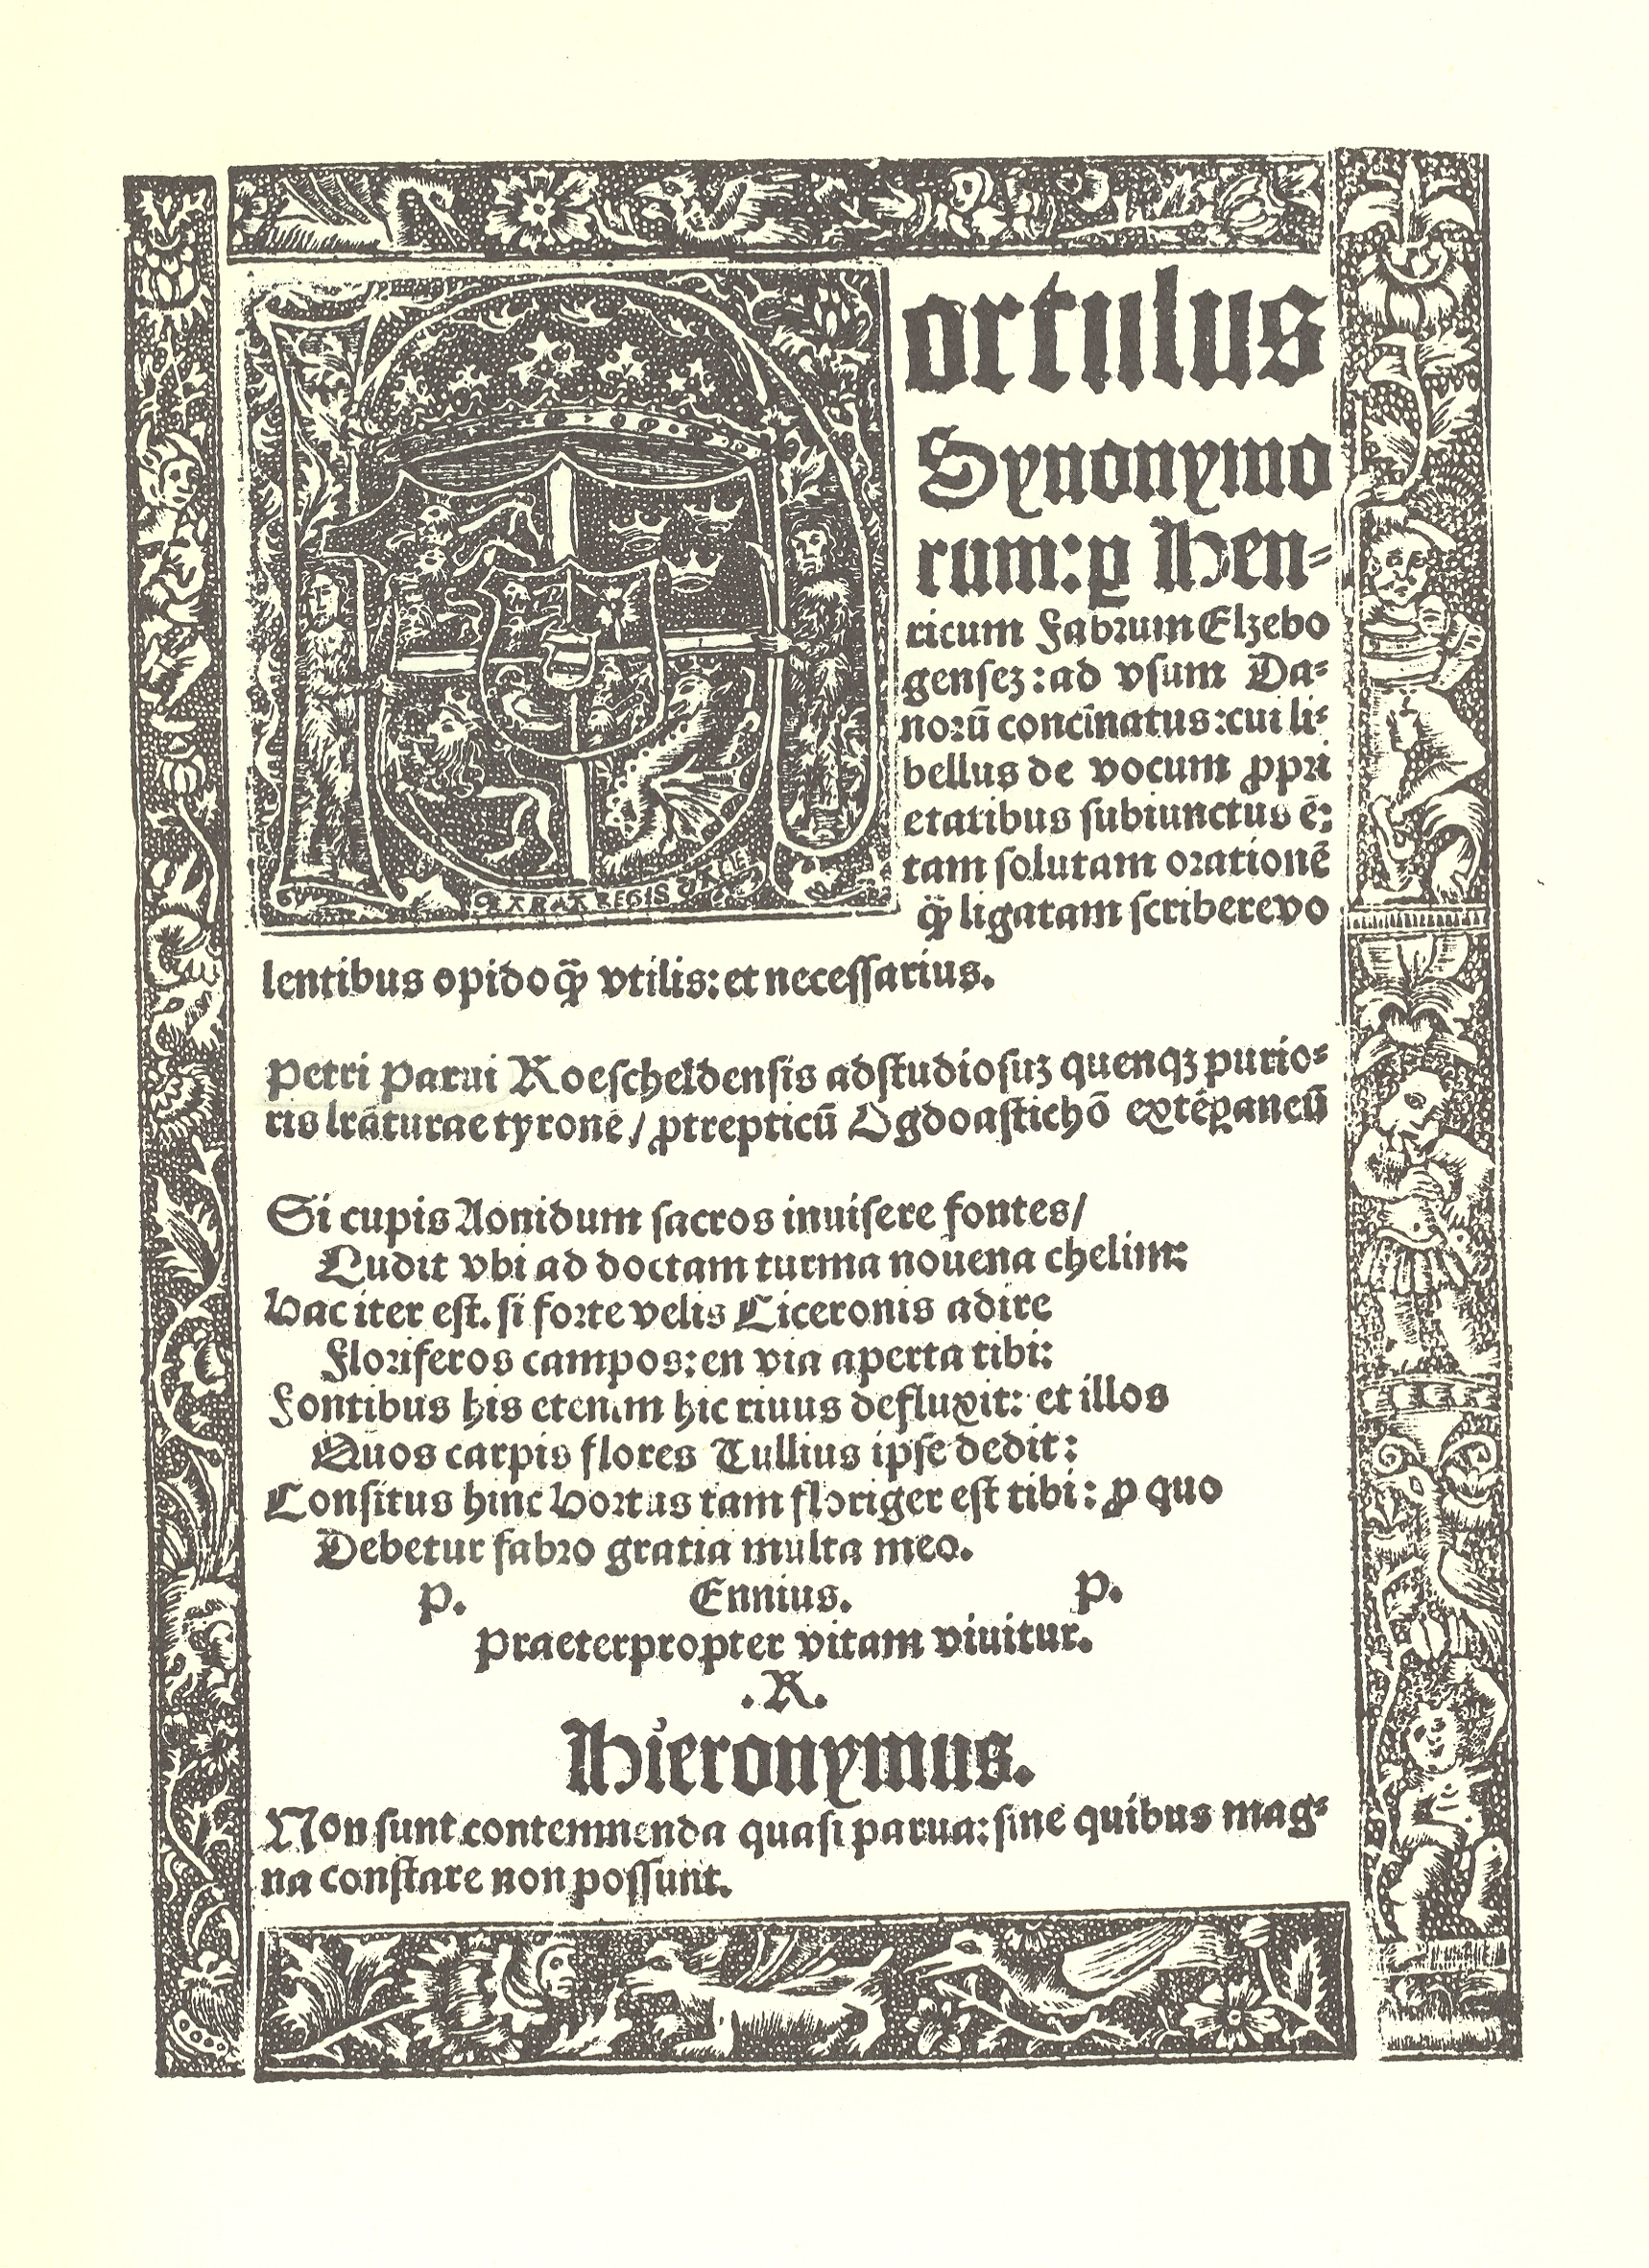 Hortulus
Synonymo
rum:ꝑ Hen⸗
ricum Fabrum Elzebo
gensez:ad vsum Da⸗
norū concīnatus:cui li⸗
bellus de vocum ꝓpri
etatibus subiunctus ē:
tam solutam orationē
q̄ꝫ ligatam scribere vo
lentibus opidoq̄ꝫ vtilis:et necessarius.
Petri Parui Roescheldensis ad studiosuz quenqꝫ purio⸗
ris lrāturae tyronē/ ꝓtrepticū Ogdoastichō extēꝑaneū
Si cupis Aonidum sacros inuisere fontes/
Ludit vbi ad doctam turma nouena chelim:
Hac iter est. si forte velis Ciceronis adire
Floriferos campos:en via aperta tibi:
Fontibus his etenim hic riuus defluxit: et illos
Quos carpis flores Tullius ipse dedit:
Consitus hinc Hortus tam floriger est tibi: ꝓ quo
Debetur fabro gratia multa meo.
P. Ennius. P.
Praeterpropter vitam viuitur.
.R.
Hieronymus.
Non sunt contemnenda quasi parua: sine quibus mag⸗
na constare non possunt.